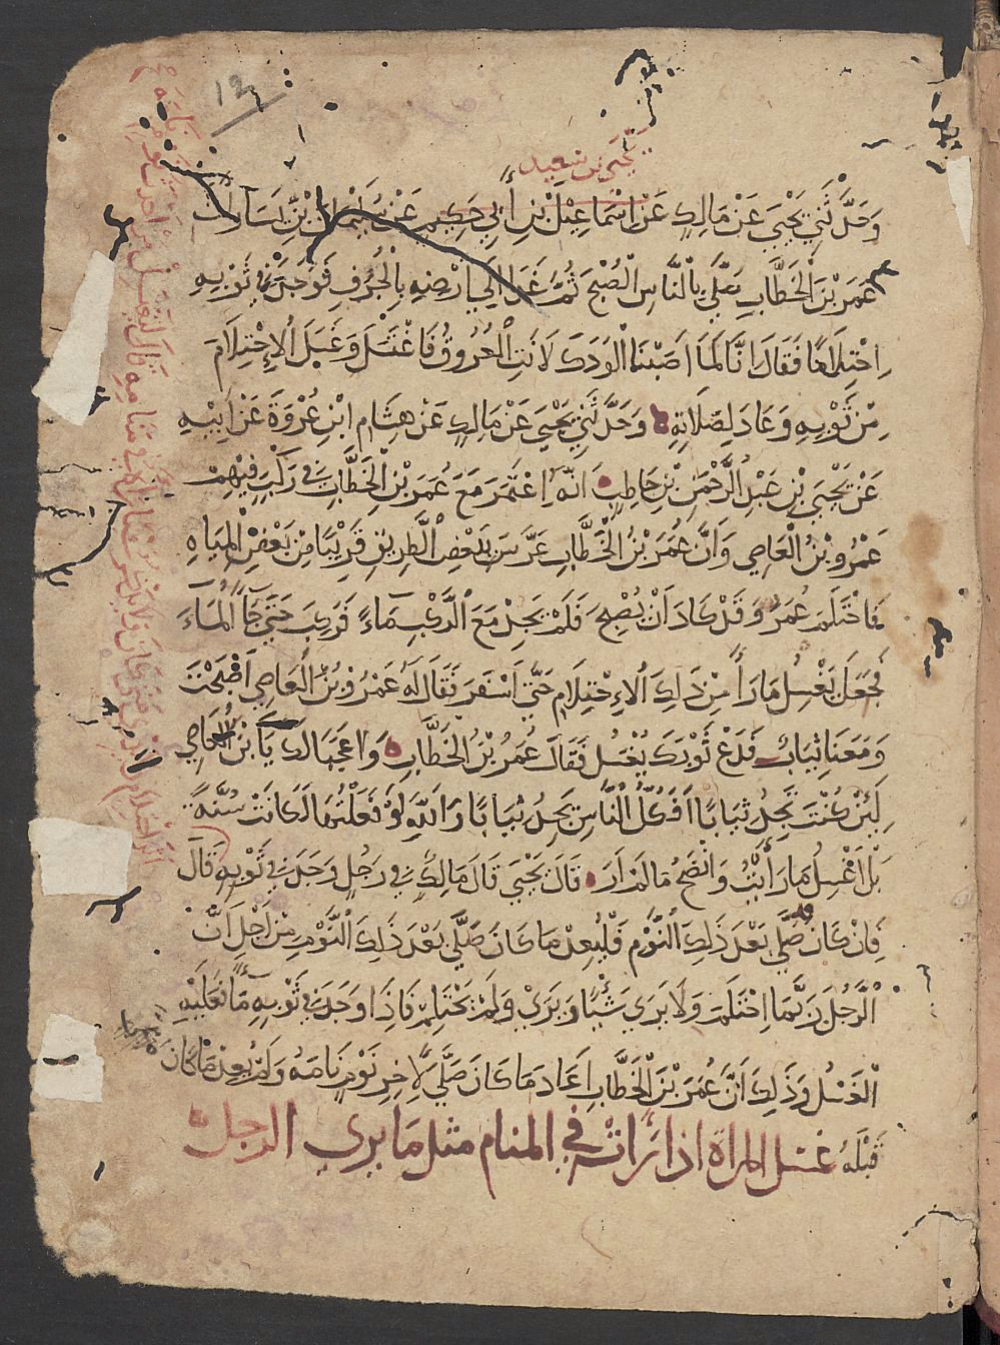 يحيى بن سعيد
وَحَدَّثَنِي يَحْيَى عَنْ مَالِكٍ عَنْ اِسْمَاعِيْلَ بْنِ أَبِي حَكِيمٍ عَنْ سُلَيْمٰانَ بْنِ يَسَارٍ اَنَّ
عُمَرَ بْنَ الْخَطَّابِ صَلَّى بِالنَّاسِ الْصُبْحَ ثُمَّ غَدَا اِلَى اَرْضِهِ بِالْجُرُفِ فَوَجَدَ فِي ثَوْبِهِ
اِحْتِلَامًا فَقَالَ اِنَّا لَمَّا اَصَبْنَا الْوَدَكَ لَانَتِ الْعُرُوقُ فَاغْتَسَلَ وَغَسَلَ الْاِحْتِلَامَ
مِنْ ثَوْبِهِ وَعَادَ لِصَلَاتِهِ وَحَدَّثَنِي يَحْيَى عَنْ مَالِكٍ عَنْ هِشَامِ ابْنِ عُرْوَةَ عَنْ اَبِيْهِ
عَنْ يَحْيَى بْنِ عَبْدِ الرَّحْمٰنِ بْنِ حَاطِبٍ اَنَّهُ اعْتَمَرَ مَعَ عُمَرَ بْنِ الْخَطَّابِ فِي رَكْبٍ فِيْهِمْ
عَمْرُو بْنُ الْعَاصِي وَاَنَّ عُمَرَ بْنَ الْخَطَّابِ عَرَّسَ بِبَعْضِ الْطَرِيقِ قَرِيْبًا مِنْ بَعْضِ الْمِيَاهِ
فَاحْتَلَمَ عُمَرُ وَقَدْ كَادَ اَنْ يُصْبِحَ فَلَمْ يَجِدْ مَعَ الْرَّكْبِ مَاءً فَرَكِبَ حَتَّى جَآءَ الْمَآءَ
فَجَعَلَ يَغْسِلُ مَا رَأَى مِنْ ذَلِكَ الْاِحْتِلَامِ حَتَّى اَسْفَرَ فَقَالَ لَهُ عَمْرُو بْنُ الْعَاصِي اَصْبَحْتَ
وَمَعَنَا ثِيَابٌ فَدَعْ ثَوْبَكَ يُغْسَل فَقَالَ عُمَرُ بْنُ الْخَطَّابِ وَاعَجَبَا لَكَ يَا بْنَ الْعَاصِي
لَئِنْ كُنْتَ تَجِدُ ثِيَابًا اَفَكُلُّ الْنَّاسِ يَجِدُ ثِيَابًا وَاللّٰهِ لَوْ فَعَلْتُهَا لَكَانَتْ سُنَّةً
بَلْ اَغْسِلُ مَا رَأَيْتُ وَانْضَحُ مَا لَمْ اَرَ قَالَ يَحْيَى قَالَ مَالِكٌ فِي رَجُلٍ وَجَدَ فِي ثَوْبِهِ قَالَ
فَاِنْ كَانَ قد صَلَّى بَعْدَ ذَلِكَ الْنَّوْمِ فَلْيُعِدْ مَا كَانَ صَلَّى بَعْدَ ذَلِكَ الْنَّوْمِ مِنْ اَجْلِ اَنَّ
الْرَّجُلَ رُبَّمَا احْتَلَمَ وَلَا يَرَى شَيْئًا وَيَرَى وَلَمْ يَحْتَلِمْ فَاِذَا وَجَدَ فِي ثَوْبِهِ مَآءً فَعَلَيْهِ
الْغُسْلُ وَذَلِكَ اَنَّ عُمَرَ بْنَ الْخَطَّابِ اَعَادَ مَا كَانَ صَلَّى لِاٰخِرِ نَوْمٍ نَامَهُ وَلَمْ يُعِدْ مَا كَانَ
قَبْلَهُ غسل المراة اذا رَاَتْ في المنام مثل مَا يرى الرجل